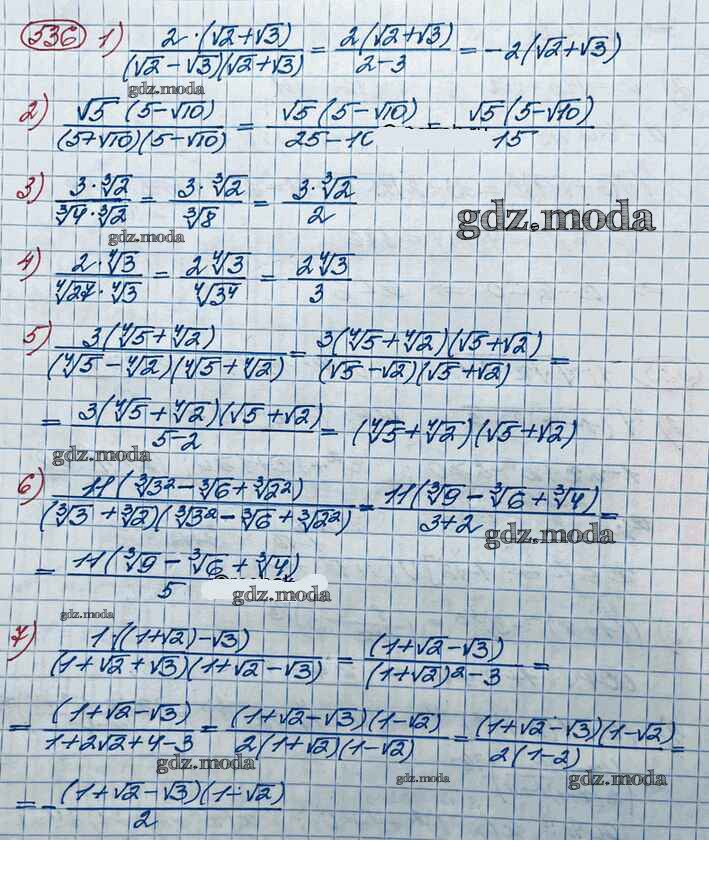 536 1) 2·(√2+√3)/((√2-√3)(√2+√3)) = 2(√2+√3)/(2-3) = -2(√2+√3)
gdz.moda
2) √5 (5-√10)/((5+√10)(5-√10)) = √5(5-√10)/(25-10) = √5(5-√10)/15
3) 3·∛2/(∛4·∛2) = 3·∛2/∛8 = 3·∛2/2
gdz.moda
gdz.moda
4) 2·∜3/(∜27·∜3) = 2∜3/∜3⁴ = 2∜3/3
5) 3(∜5+∜2)/((∜5-∜2)(∜5+∜2)) = 3(∜5+∜2)(√5+√2)/((√5-√2)(√5+√2)) =
= 3(∜5+∜2)(√5+√2)/(5-2) = (∜5+∜2)(√5+√2)
gdz.moda
6) 11(∛3²-∛6+∛2²)/((∛3+∛2)(∛3²-∛6+∛2²)) = 11(∛9-∛6+∛4)/(3+2) =
gdz.moda
= 11(∛9-∛6+∛4)/5
gdz.moda
gdz.moda
7) 1·((1+√2)-√3)/((1+√2+√3)(1+√2-√3)) = (1+√2-√3)/((1+√2)²-3) =
= (1+√2-√3)/(1+2√2+4-3) = (1+√2-√3)(1-√2)/(2(1+√2)(1-√2)) = (1+√2-√3)(1-√2)/(2(1-2)) =
gdz.moda
gdz.moda
gdz.moda
= -(1+√2-√3)(1-√2)/2